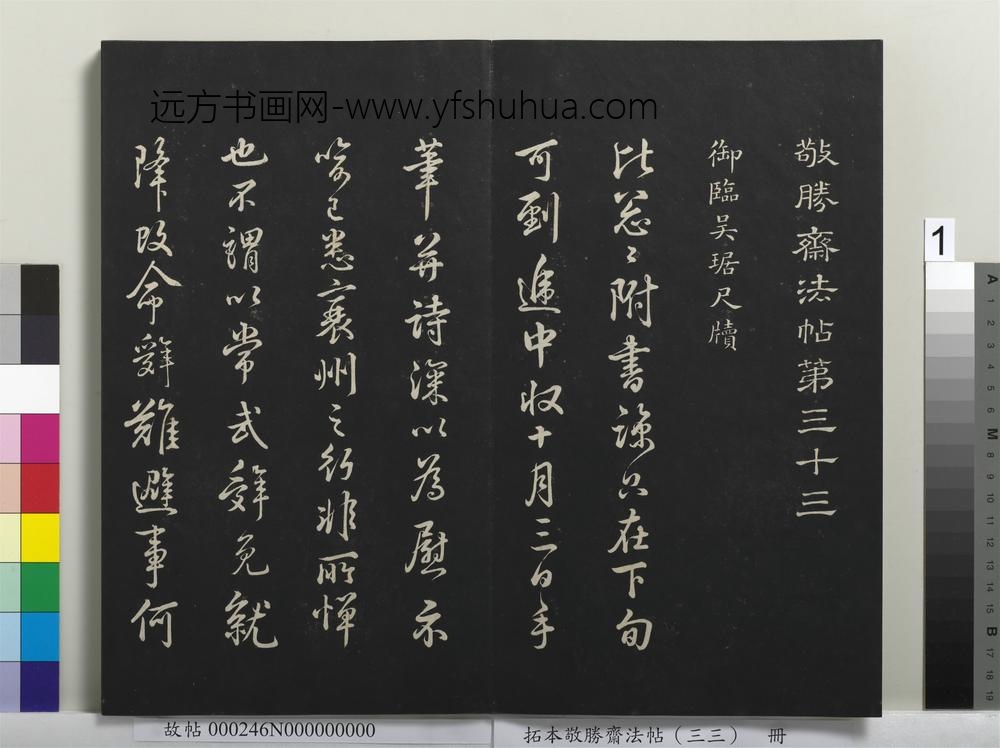 远方书画网-www.yfshuhua.com
敬勝齋法帖第三十三
御臨吴琚尺牘
比忩〻附書諒只在下旬
可到遞中収十月三日手
筆并詩深以為慰示
喻已悉襄州之行非所憚
也不謂以常式辭免就
降改命辭難避事何
1
A 1 2 3 4 5 6 M 8 9 10 11 12 13 14 15 B 17 18 19
故帖 000246N000000000
拓本敬勝齋法帖（三三） 冊